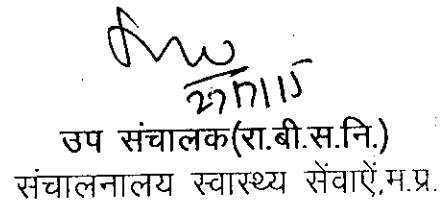 27/7/15
उप संचालक(रा.बी.स.नि.)
संचालनालय स्वास्थ्य सेंवाऐं,म.प्र.